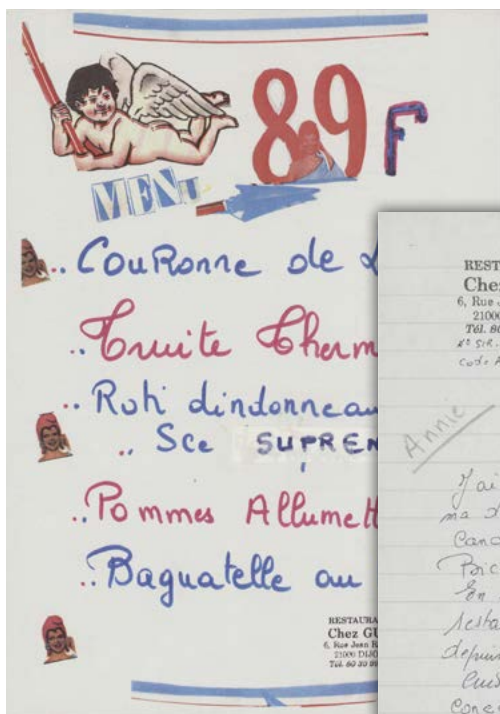 89 F
MENU
.. Couronne de
.. Truite Therm
.. Roti dindonneau
.. Sce SUPREM
.. Pommes Allumett
.. Baguatelle au
RESTAURA
Chez GU
6, Rue Jean R
21000 DIJO
Tél. 80 30 9
REST
Chez
6, Rue
21000
Tél. 80
N° SIR.
Code A
Annie
J'ai
ma
Canc
Bic
En
resta
depuis